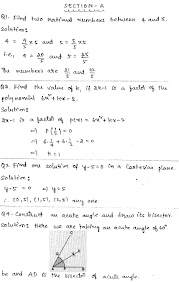 SECTION-A
Q1. Find two rational numbers between 4 and 5.
Solution:
4 = 4/1 × 5 and 5 = 5/5 × 5
4 = 20/5 and 5 = 25/5
The numbers are 21/5 and 22/5
Q2. Find the value of k, if 2x-1 is a factor of the
polynomial 6x² + kx - 2.
Solution:
2x-1 is a factor of p(x) = 6x² + kx - 2
⇒ P(1/2) = 0
⇒ 6·1/4 + k·1/2 - 2 = 0
⇒ k = 1
Q3. Find one solution of y-5=0 in a Cartesian plane.
Solution:
y-5=0 ⇒ y=5
∴ (0,5), (1,5), (2,5) any one.
Q4. Construct an acute angle and draw its bisector.
Solution: Here we are taking an acute angle of 60°
be and AD is the bisector of acute angle.